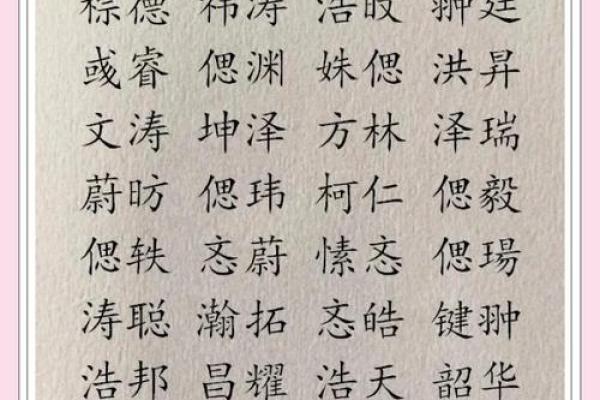 德 涛 浩 翀廷
彧睿 偲渊 姝偲 洪昇
文涛 坤泽 方林 泽瑞
蔚昉 偲玮 柯仁 偲毅
偲轶 忞蔚 愫忞 偲瑒
涛聪 瀚拓 忞皓 键翀
浩邦 昌耀 浩天 韶华